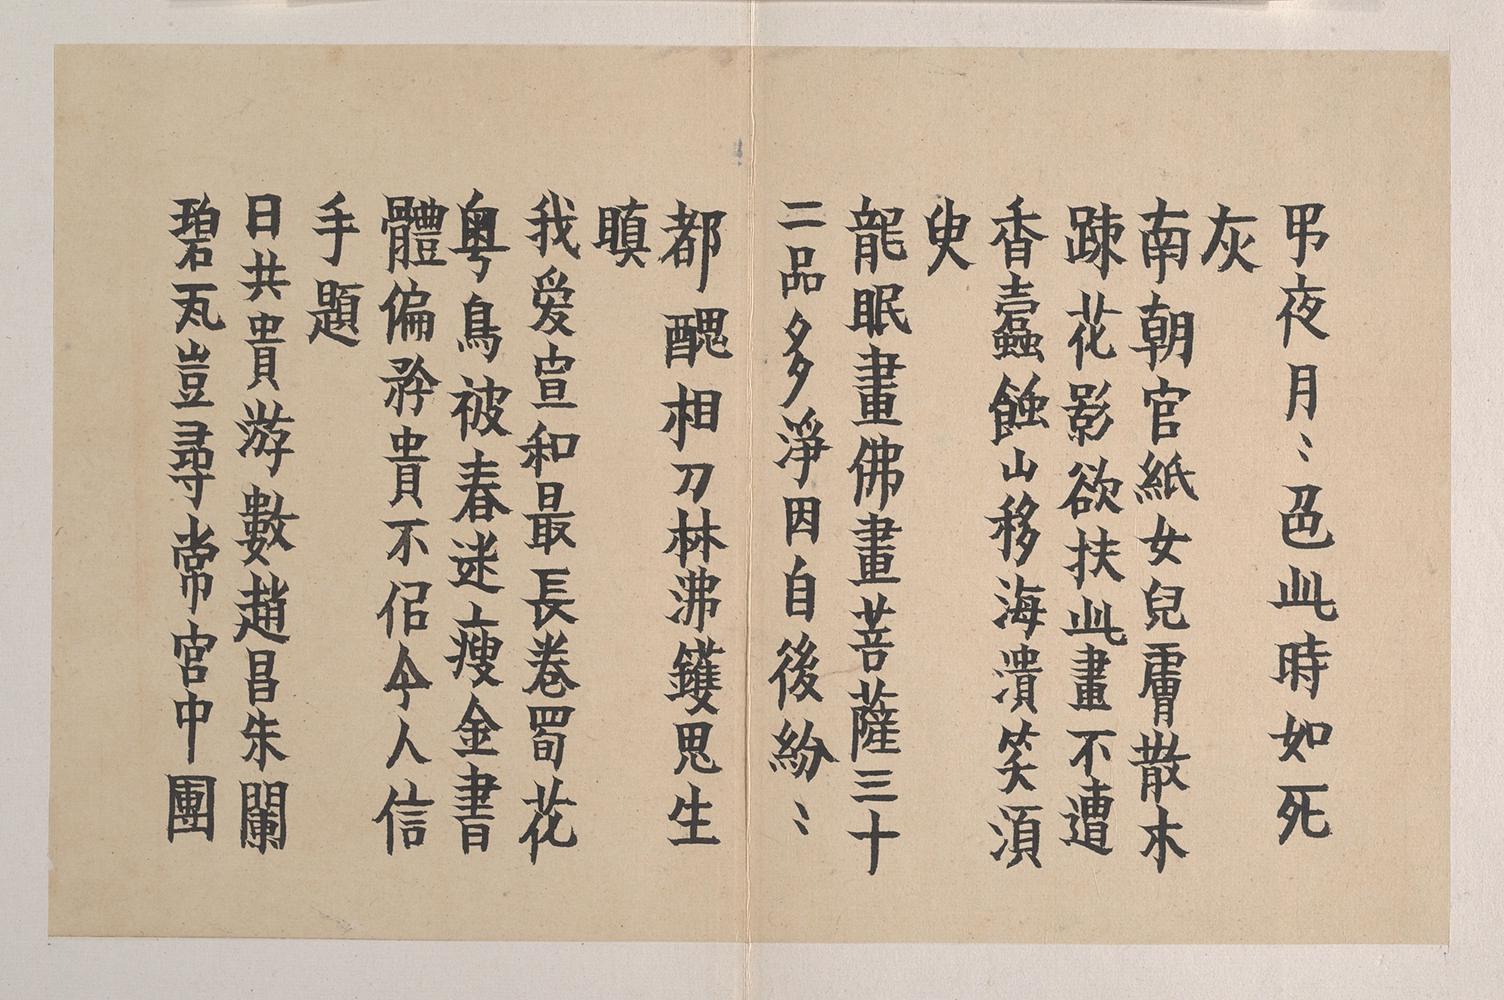 弔夜月〻色此時如死
灰
南朝官紙女兒膚散木
疎花影欲扶此畫不遭
香蠧蝕山移海潰笑湏
臾
龍眠畫佛畫菩薩三十
二品多淨因自後紛〻
都醜相刀林沸鑊思生
瞋
我愛宣和最長卷蜀花
粤鳥被春迷瘦金書
體偏矜貴不佀今人信
手題
日共貴游數趙昌朱闌
碧瓦豈尋常宮中團